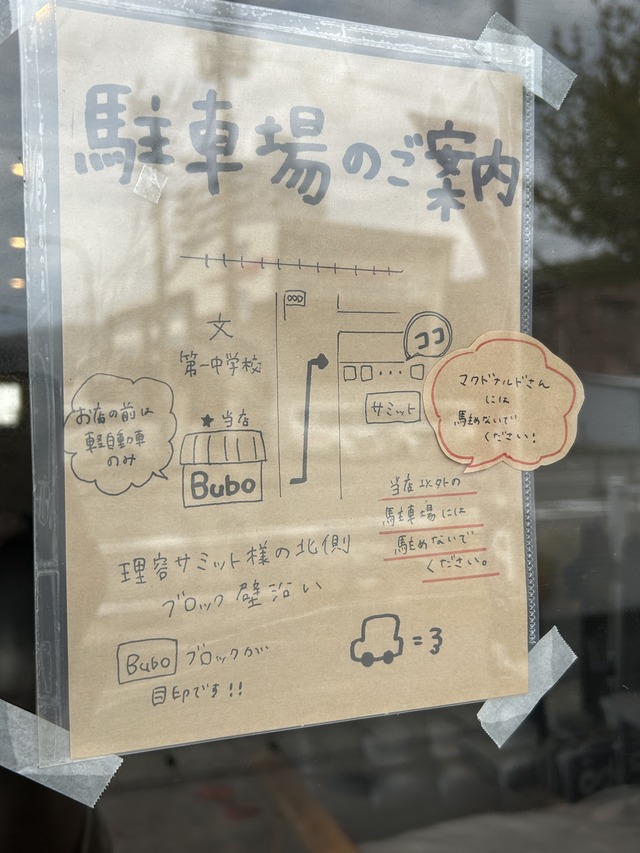 駐車場のご案内
文
第一中学校
ココ
お店の前は
軽自動車
のみ
★当店
Bubo
サミット
マクドナルドさん
には
駐めないで
ください!
当店以外の
駐車場には
駐めないで
ください。
理容サミット様の北側
ブロック壁沿い
Bubo ブロックが
目印です!!